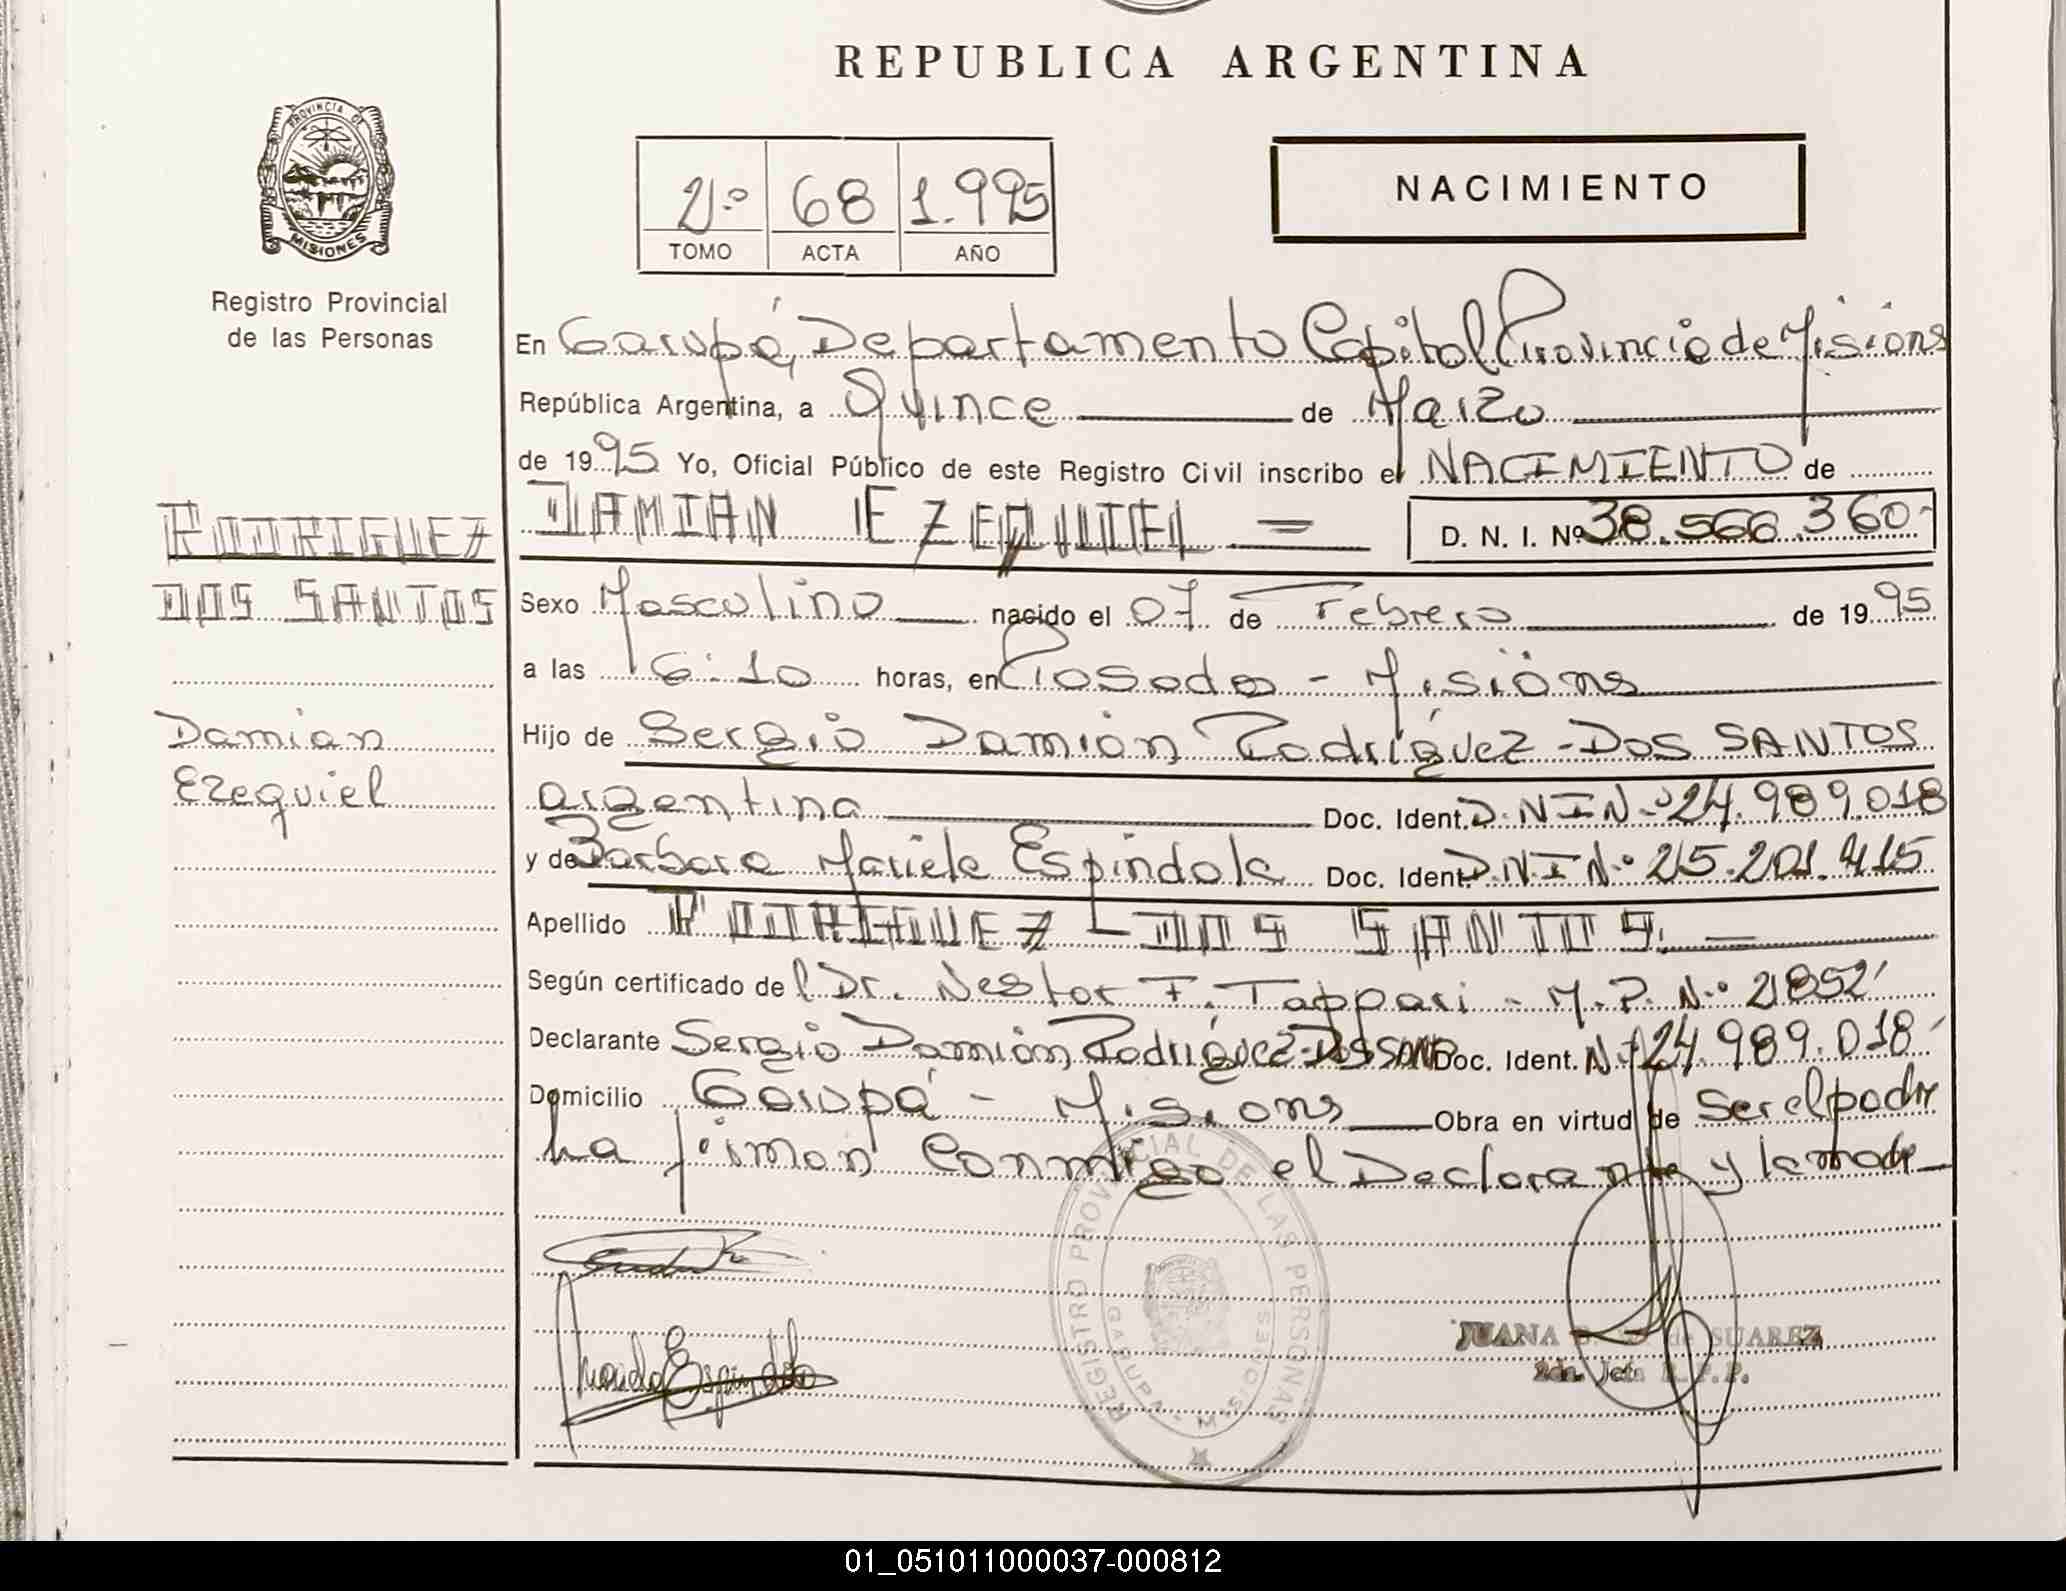 REPUBLICA ARGENTINA
PROVINCIA DE
MISIONES
Registro Provincial
de las Personas
2º 68 1.995
TOMO ACTA AÑO
NACIMIENTO
En Garupá, Departamento Capital Provincia de Misions
República Argentina, a Quince de Marzo
de 1995 Yo, Oficial Público de este Registro Civil inscribo el NACIMIENTO de
RODRIGUEZ
DOS SANTOS
Damian
Ezequiel
DAMIAN EZEQUIEL = D. N. I. Nº 38.566.360-
Sexo Masculino nacido el 07 de Febrero de 1995
a las 16:10 horas, en Posadas - Misions
Hijo de Sergio Damián Rodríguez - DOS SANTOS
argentina Doc. Ident. D.N.I Nº 24.989.018
y de Barbara Mariela Espindola Doc. Ident. D.N.I Nº 25.201.415
Apellido RODRIGUEZ - DOS SANTOS.
Según certificado del Dr. Nestor F. Tappari - M.P. Nº 2852
Declarante Sergio Damián Rodríguez - Dos Doc. Ident. Nº 24.989.018
Domicilio Garupá - Misions Obra en virtud de Ser el padre
ha firman Conmigo el Declarante y la madre
REGISTRO PROVINCIAL DE LAS PERSONAS
GARUPA - MISIONES
Espindola
JUANA de SUAREZ
R.P.P.
01_051011000037-000812